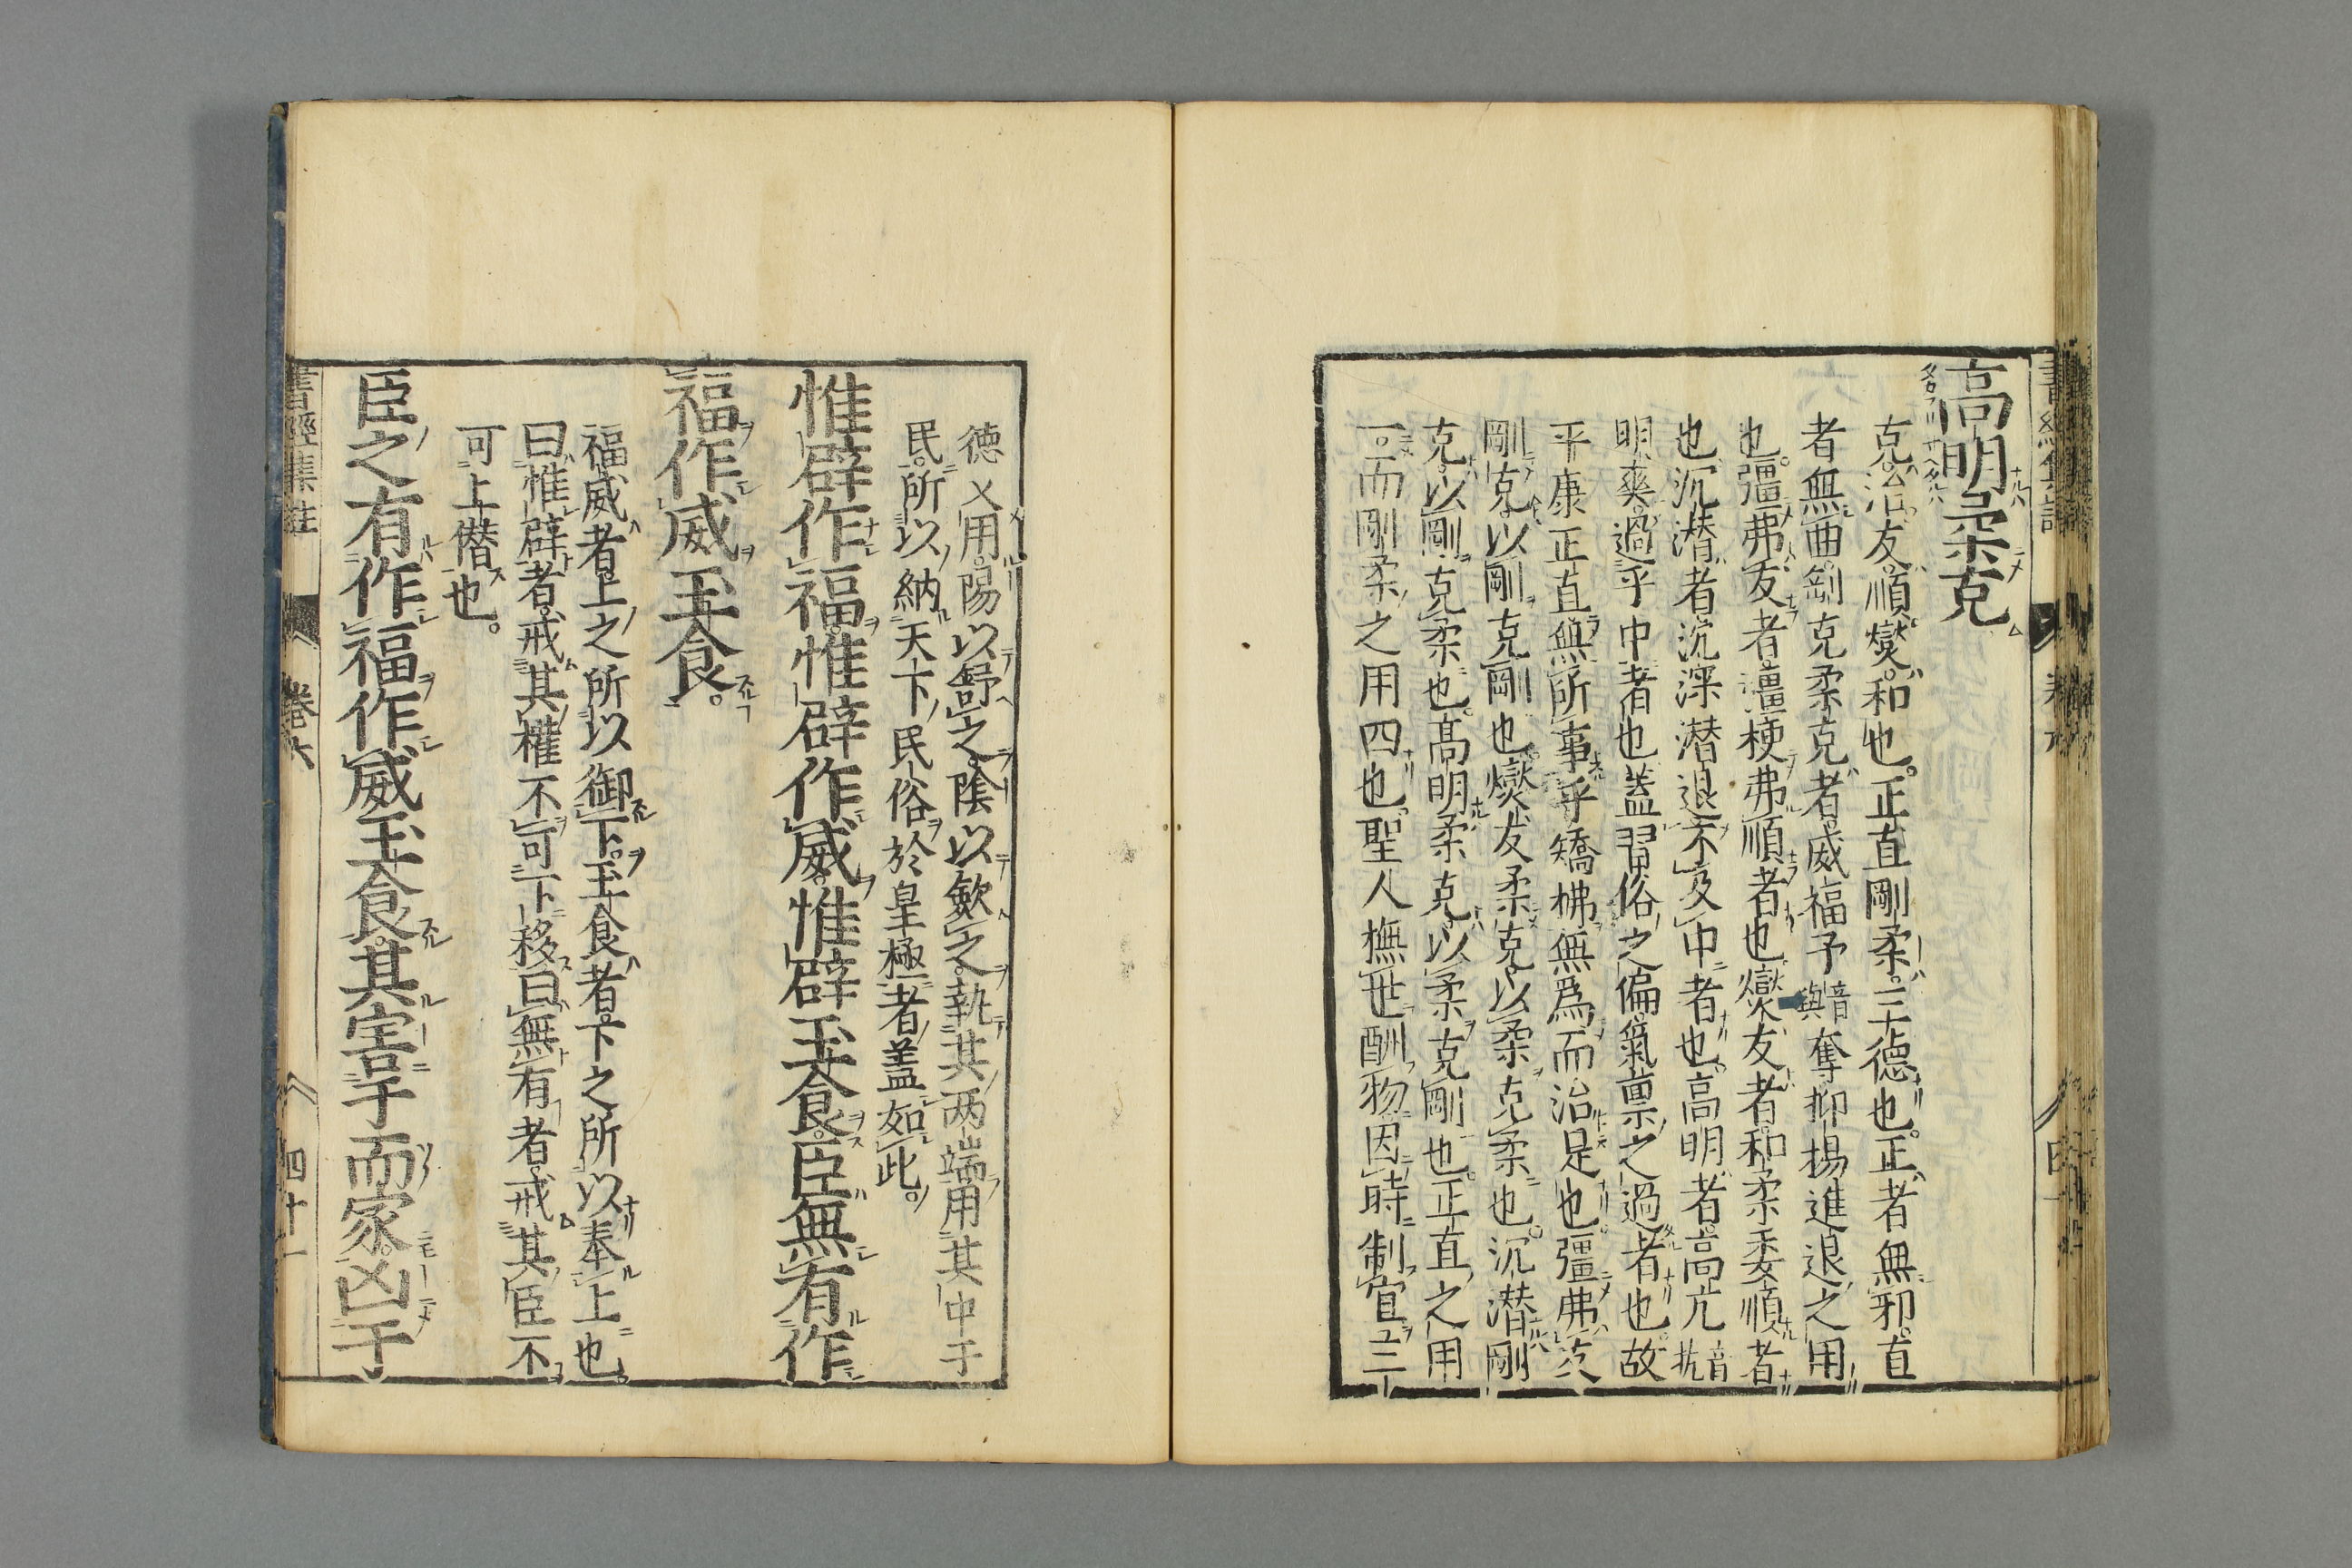 高明柔克
克治友順燮和也正直剛柔三德也正者無邪直
者無曲剛克柔克者威福予音與奪抑揚進退之用
也彊弗友者彊梗弗順者也燮友者和柔委順者
也沉潜者沉深潜退不及中者也高明者高亢音抗
明爽過乎中者也蓋習俗之偏氣禀之過者也故
平康正直無所事乎矯拂無爲而治是也彊弗友
剛克以剛克剛也燮友柔克以柔克柔也沉潜剛
克以剛克柔也高明柔克以柔克剛也正直之用
一而剛柔之用四也聖人撫世酬物因時制宜三
德乂用陽以舒之陰以斂之執其两端用其中于
民所以納天下民俗於皇極者盖如此
惟辟作福惟辟作威惟辟玉食臣無有作
福作威玉食
福威者上之所以御下玉食者下之所以奉上也
曰惟辟者戒其權不可下移曰無有者戒其臣不
可上僭也
臣之有作福作威玉食其害于而家凶于
書經集註 卷六 四十一